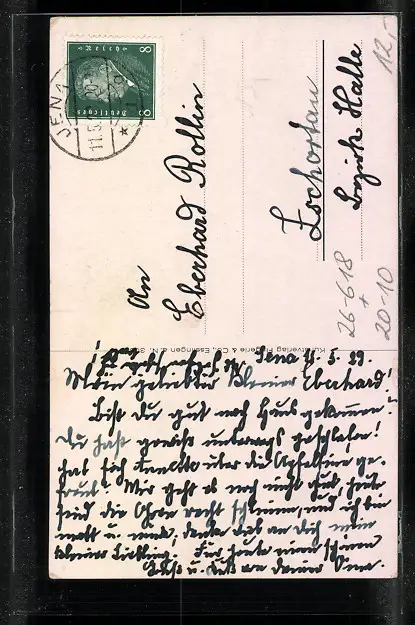 JENA
11.5.
Deutsches
Reich
8
8
An
Eberhard Rollin
Zschortau
Bezirk Halle
12,-
26-618
+
20-10
Kunstverlag & Co., Esslingen a. N.
Jena 11.5.29.
Mein geliebter kleiner Eberhard!
Bist Du gut nach Haus gekommen?
Du hast gewiß unterwegs geschlafen!
hat sich über die Apfelsine ge-
freut. Mir geht es noch nicht gut, heute
sind die Ohren recht schlimm, und ich bin
matt u. müde, denke lieb an Dich mein
kleiner Liebling. Für heute einen schönen
Gruß u. Kuß von Deiner